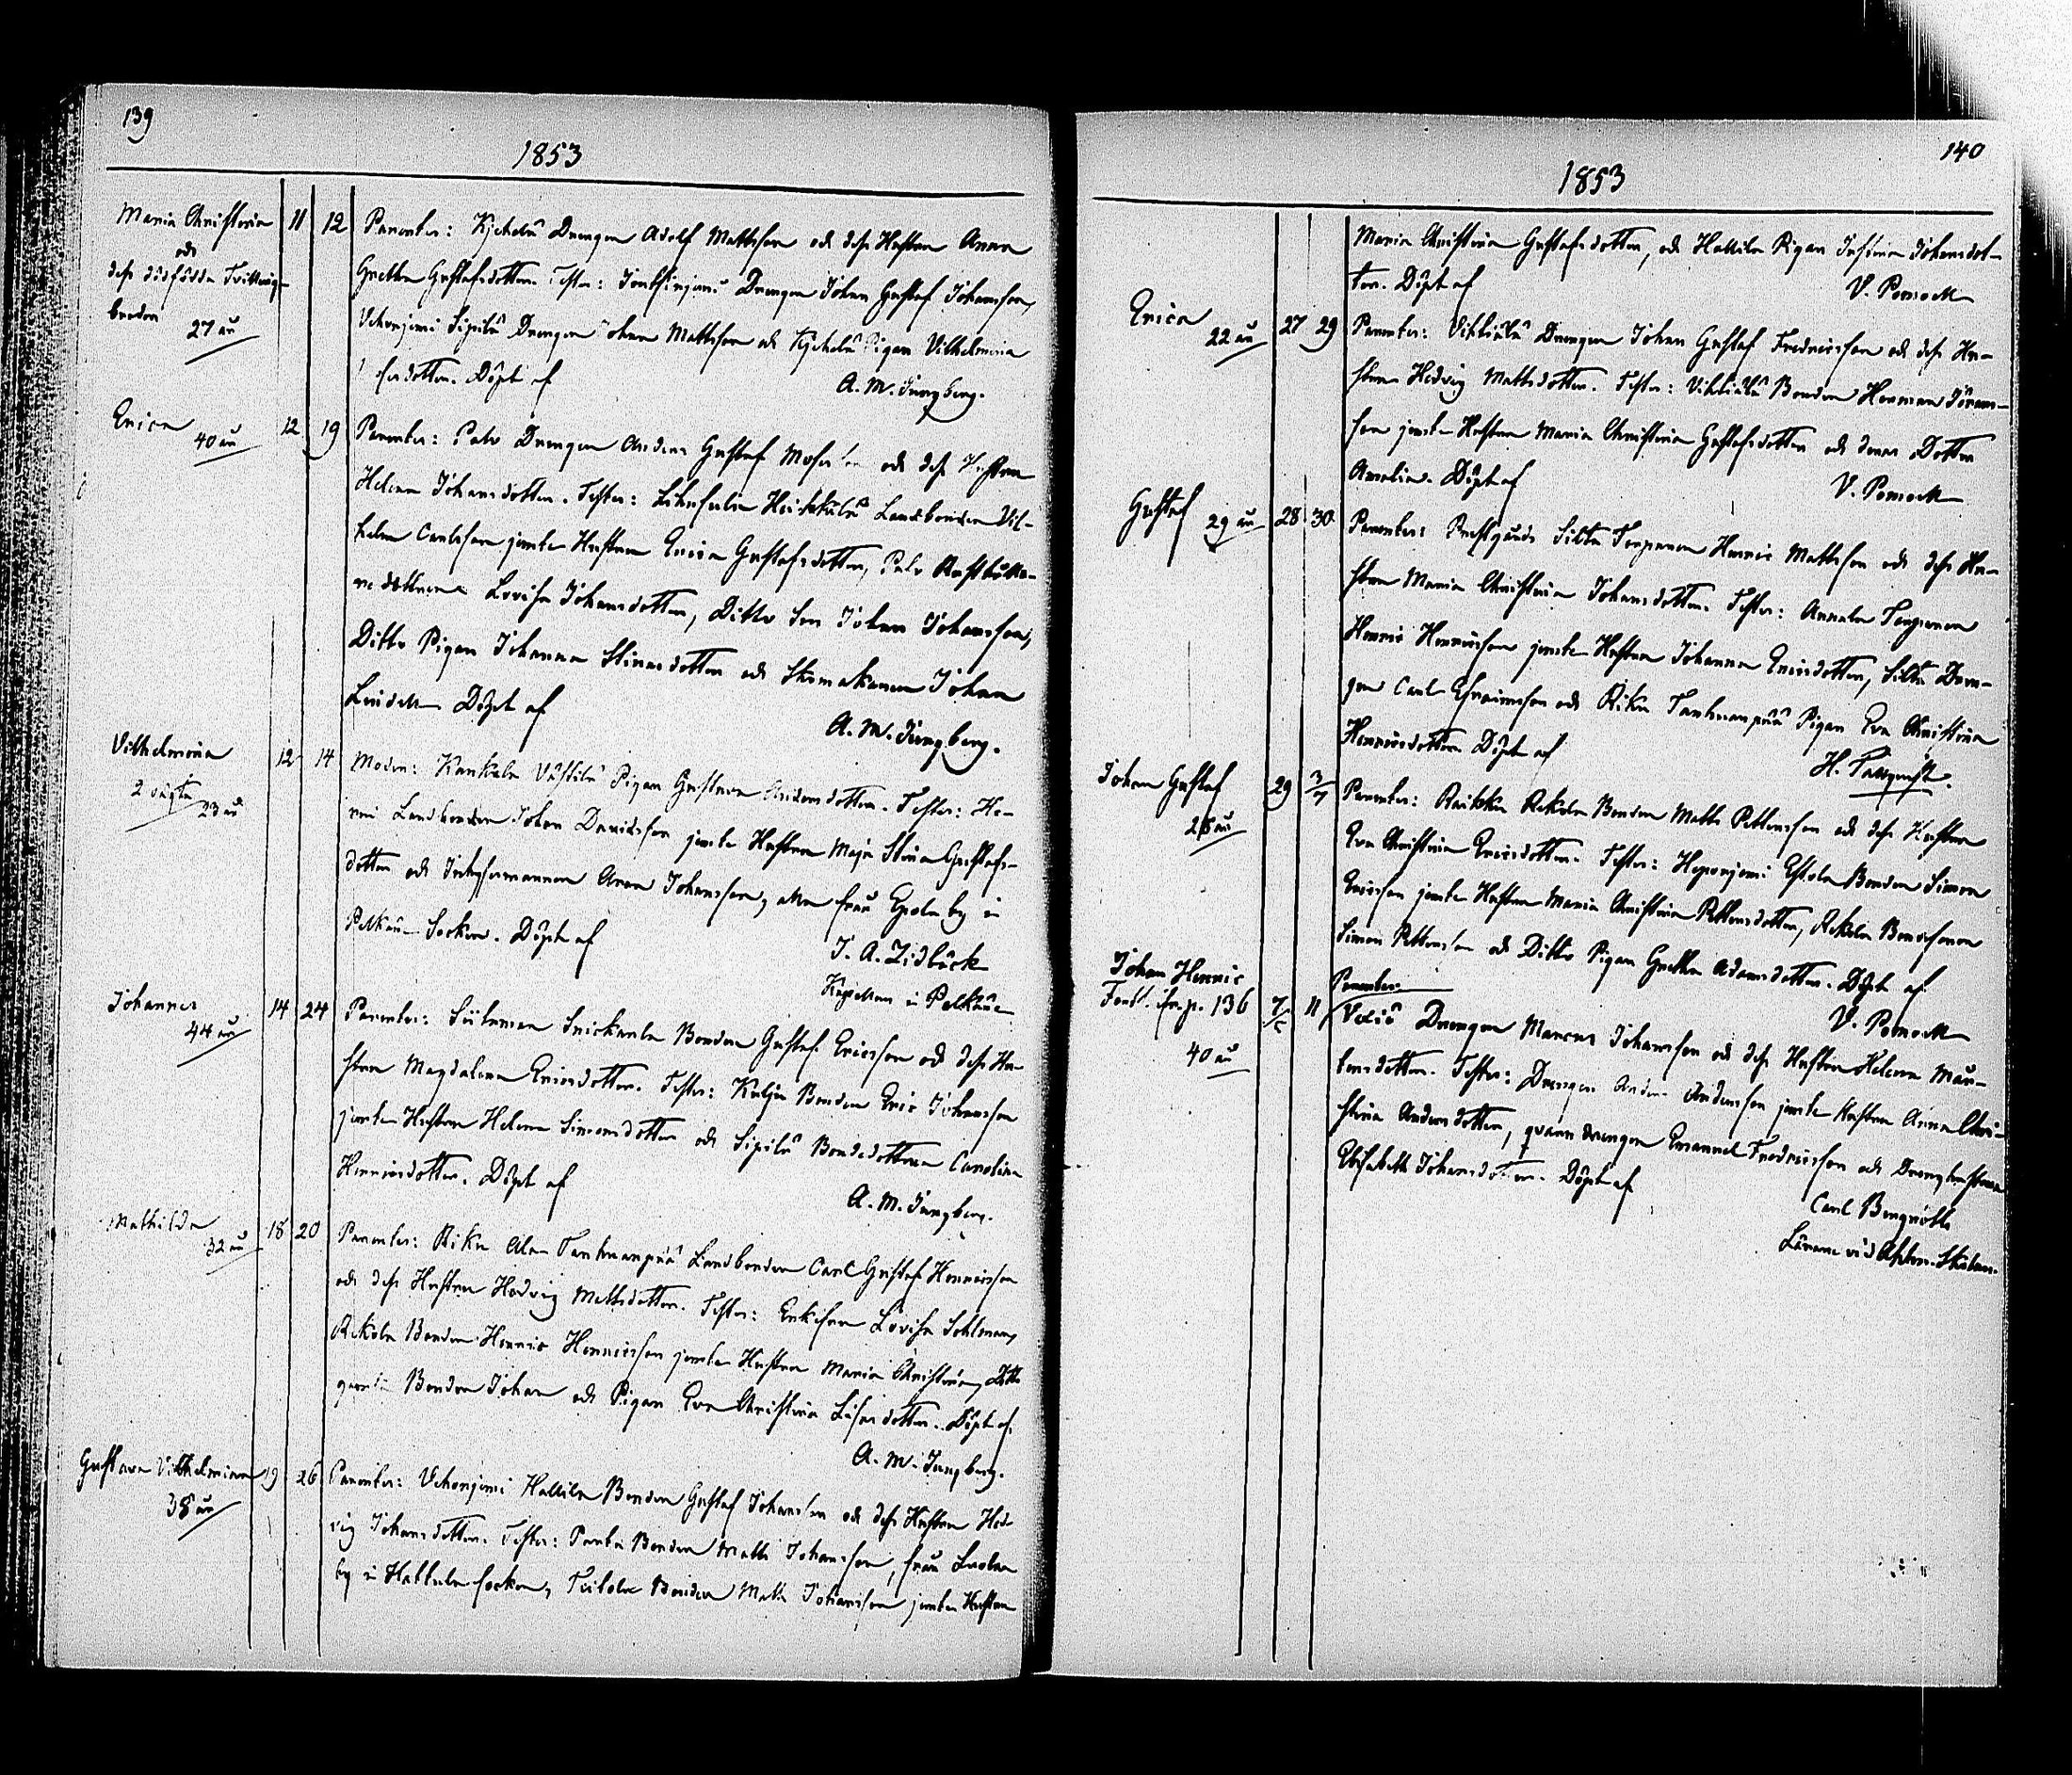 139
1853
Maria Christina
och
dess dödfödda Tvilling-
broder
27 år
11 12
Parentes: Kjekelä Drengen Adolf Mattsson och dess Hustru Anna
Gretha Gustafsdotter. Testes: Drengen Johan Gustaf Johansson,
Uskonjemi Sipilä Drengen Johan Mattsson och Kjekelä Pigan Vilhelmina
Döpt af
A. M. Ljungberg.
Erica
40 år
12 19
Parentes: Palo Drengen Anders Gustaf och dess Hustru
Helena Johansdotter. Testes: Heikkilä Landbonden Vil-
helm Carlsson jemte Hustru Erica Gustafsdotter, Palo Rusthålla-
redottren Lovisa Johansdotter, Ditto Son Johan Johansson,
Ditto Pigan Johanna Stinasdotter och Skomakaren Johan
Lindell Döpt af
A. M. Ljungberg.
Vilhelmina
2 oägta
23 år
12 14
Moder: Kankala Pigan Gustava Andersdotter. Testes:
Landbonden Johan Davidsson jemte Hustru Maja Stina Gustafs-
dotter och Inhysesmannen Aron Johansson, alla från Epola by i
Pelkäne Socken. Döpt af
J. A. Lidbäck
Kapellan i Pelkäne
Johannes
44 år
14 24
Parentes: Snickarla Bonden Gustaf Ericsson och dess Hu-
stru Magdalena Ericsdotter. Testes: Bonden Eric Johansson
jemte Hustru Helena Simonsdotter och Sipilä Bondedottren Carolina
Henricsdotter. Döpt af
A. M. Ljungberg.
Mathilda
32 år
18 20
Parentes: Riku Ala Tanhuanpää Landbonden Carl Gustaf Henricsson
och dess Hustru Hedvig Mattsdotter. Testes: Enkefru Lovisa Sohlman,
Rekola Bonden Henric Henricsson jemte Hustru Maria Christina,
Bonden Johan och Pigan Eva Christina Lisasdotter. Döpt af
A. M. Ljungberg.
Gustava Vilhelmina
38 år
19 26
Parentes: Uskonjemi Hallila Bonden Gustaf Johansson och dess Hustru Hed-
vig Johansdotter. Testes: Bonden Matts Johansson, från
by i Hattula socken, Bonden Matts Johansson jemte Hustru
140
1853
Maria Christina Gustafsdotter, och Hallila Pigan Justina Johansdot-
ter. Döpt af
V. Ponsoell
Erica
22 år
27 29
Parentes: Drengen Johan Gustaf Fredricsson och dess Hu-
stru Hedvig Mattsdotter. Testes: Bonden Herman
son jemte Hustru Maria Christina Gustafsdotter och deras Dotter
Amalia. Döpt af
V. Ponsoell
Gustaf
29 år
28 30
Parentes: Prestgårds Silta Torparen Henric Mattsson och dess Hu-
stru Maria Christina Johansdotter. Testes: Annala Torparen
Henric Henricsson jemte Hustru Johanna Ericsdotter, Silta Dren-
gen Carl Efraimsson och Riku Tanhuanpää Pigan Eva Christina
Henricsdotter Döpt af
H. Pallqvist.
Johan Gustaf
28 år
29 3/7
Parentes: Raikku Rekola Bonden Matts Pettersson och dess Hustru
Eva Christina Ericsdotter. Testes: Haponjemi Eskola Bonden Simon
Ericsson jemte Hustru Maria Christina Pettersdotter, Rekola Bondesonen
Simon Pettersson och Ditto Pigan Gretha Adamsdotter. Döpt af
V. Ponsoell
Johan Henric
Forts. fr. p. 136
40 år
7/5 11
Parentes:
Drengen Marcus Johansson och dess Hustru Helena Mår-
tensdotter. Testes: Drengen Anders Andersson jemte Hustru Anna Chri-
stina Andersdotter, qvarndrengen Emanuel Fredricsson och Drenghustrun
Elisabeth Johansdotter. Döpt af
Carl Bergroth
Lärare vid Skolan.